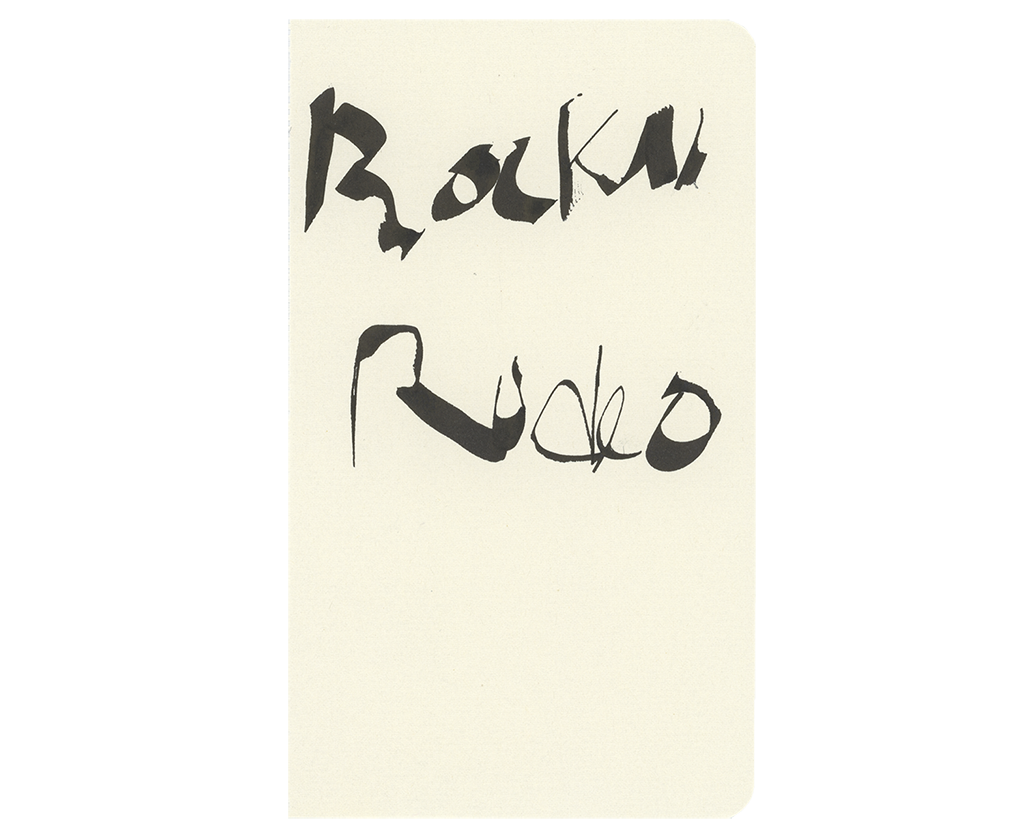 RockN
Rodeo